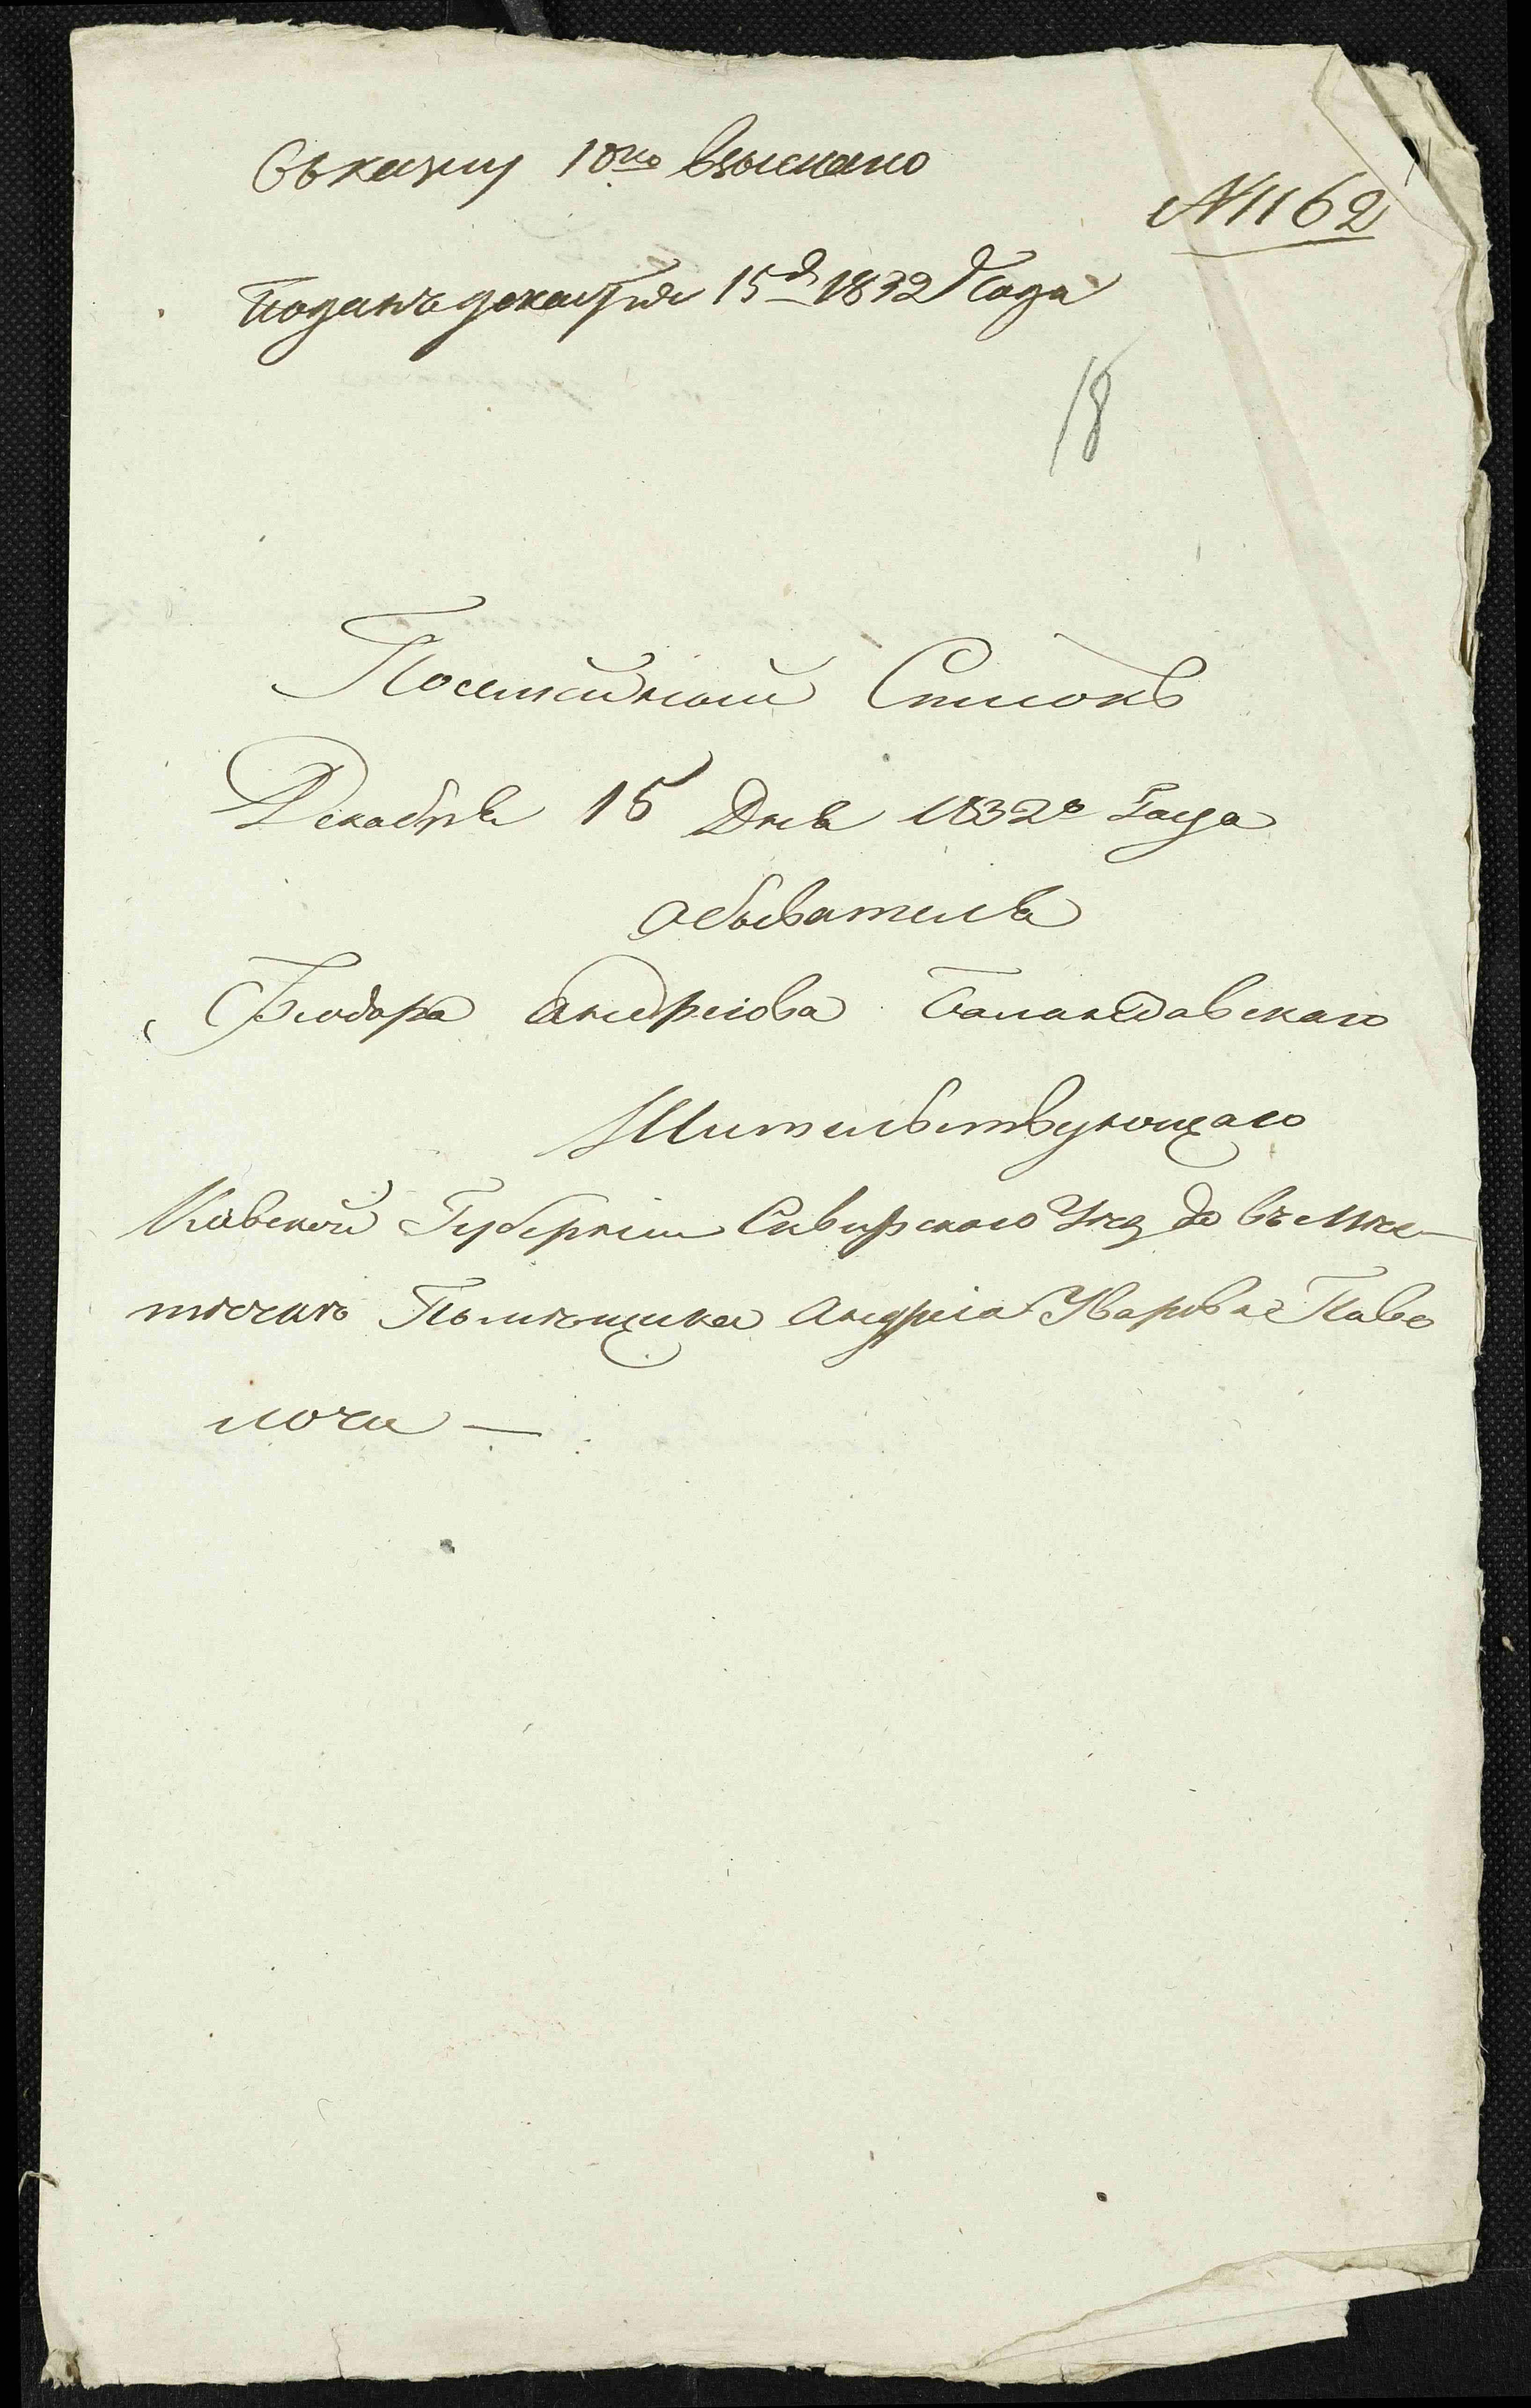 Въ казну 10 ко взыскано
№ 1162
Поданъ декабря 15 д 1832 Года
18
Посемейный Списокъ
Декабря 15 Дня 1832го Года
обывателя
Феодора андреева Баландовскаго
Жительствующаго
Кіевской Губерніи Сквирскаго Уезда въ Мѣс-
течкѣ Помѣщика андрея Уварова Паво
лочи —